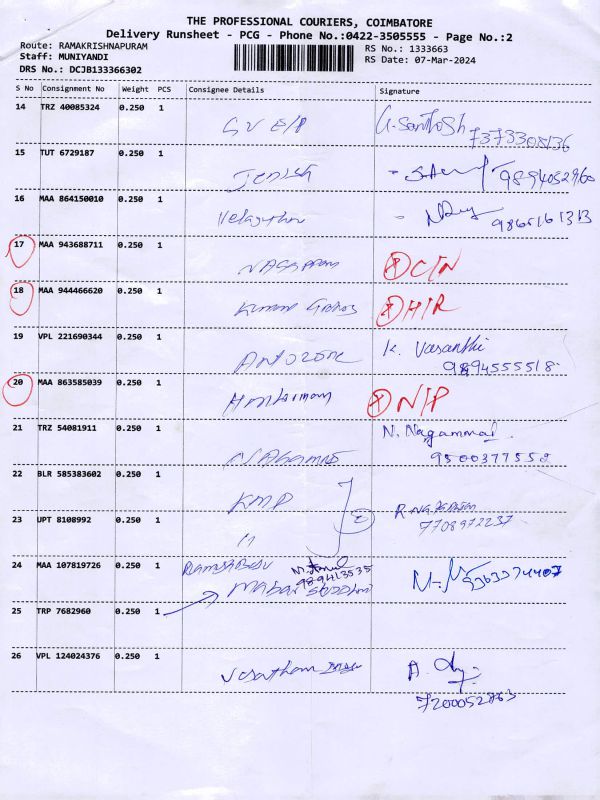 THE PROFESSIONAL COURIERS, COIMBATORE
Delivery Runsheet - PCG - Phone No.:0422-3505555 - Page No.:2
Route: RAMAKRISHNAPURAM RS No.: 1333663
Staff: MUNIYANDI RS Date: 07-Mar-2024
DRS No.: DCJB133366302
S No Consignment No Weight PCS Consignee Details Signature
14 TRZ 40085324 0.250 1 G. Santhosh
7373308136
15 TUT 6729187 0.250 1 Jenish
9894052960
16 MAA 864150010 0.250 1
9865161313
17 MAA 943688711 0.250 1 C/N
18 MAA 944466620 0.250 1 H/R
19 VPL 221690344 0.250 1 K. Vasanthi
9894555518
20 MAA 863585039 0.250 1 N/P
21 TRZ 54081911 0.250 1 N. Nagammal
9500377558
22 BLR 585383602 0.250 1 KMP
23 UPT 8108992 0.250 1 11 2
7708972237
24 MAA 107819726 0.250 1 Ramesh Babu
25 TRP 7682960 0.250 1
26 VPL 124024376 0.250 1
7200052863